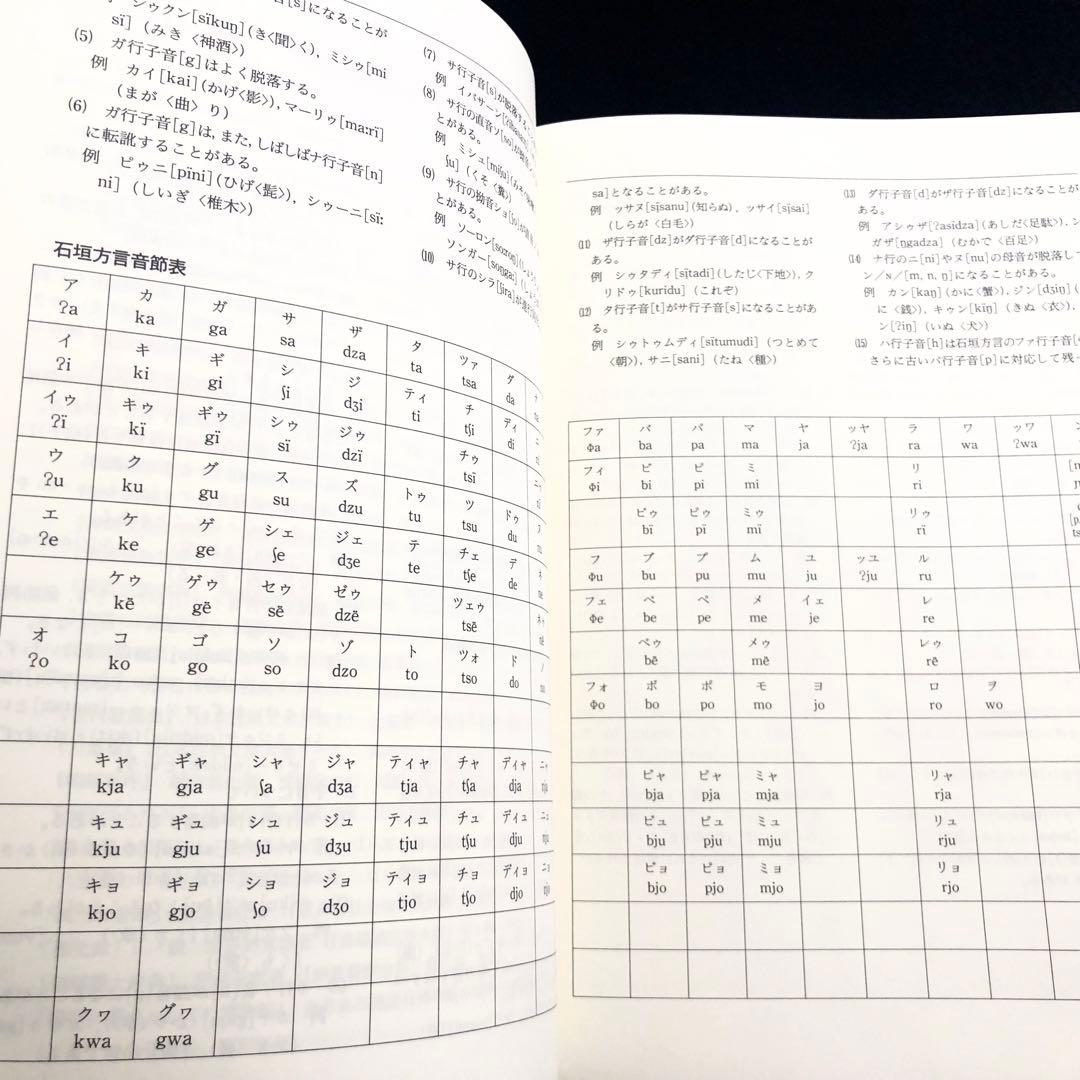 シゥクン[sïkuŋ](き〈聞〉く), ミシゥ[mi
sï] (みき〈神酒〉)
(5) ガ行子音[g]はよく脱落する。
例 カイ[kai](かげ〈影〉), マーリゥ[ma:rï]
(まが〈曲〉り)
(6) ガ行子音[g]は, また, しばしばナ行子音[n]
に転訛することがある。
例 ピゥニ[pïni](ひげ〈髭〉), シゥーニ[sï:
ni] (しいぎ〈椎木〉)
(7) サ行子音[s]が脱落する
例 イバサーン
(8) サ行の直音ソ[so]が
とがある。
例 ミシュ[miʃu]
ʃu] (くそ〈糞〉)
(9) サ行の拗音ショ[ʃo]が
とがある。
例 ソーロン[so:roŋ]
ソンガー[soŋga:]
(10) サ行のシラ[ʃira]が
石垣方言音節表
ア カ ガ サ ザ タ ツァ ダ
ʔa ka ga sa dza ta tsa da
イ キ ギ シ ジ ティ チ ディ
ʔi ki gi ʃi dʒi ti tʃi di
イゥ キゥ ギゥ シゥ ジゥ チゥ
ʔï kï gï sï dzï tsï
ウ ク グ ス ズ トゥ ツ ドゥ
ʔu ku gu su dzu tu tsu du
エ ケ ゲ シェ ジェ テ チェ デ
ʔe ke ge ʃe dʒe te tʃe de
ケゥ ゲゥ セゥ ゼゥ ツェゥ
kë gë së dzë tsë
オ コ ゴ ソ ゾ ト ツォ ド
ʔo ko go so dzo to tso do
キャ ギャ シャ ジャ ティャ チャ ディャ ニャ
kja gja ʃa dʒa tja tʃa dja nja
キュ ギュ シュ ジュ ティュ チュ ディュ
kju gju ʃu dʒu tju tʃu dju
キョ ギョ ショ ジョ ティョ チョ ディョ ニョ
kjo gjo ʃo dʒo tjo tʃo djo njo
クヮ グヮ
kwa gwa
sa]となることがある。
例 ッサヌ[sïsanu](知らぬ), ッサイ[sïsai]
(しらが〈白毛〉)
(11) ザ行子音[dz]がダ行子音[d]になることが
ある。
例 シゥタディ[sïtadi](したじ〈下地〉), ク
リドゥ[kuridu] (これぞ)
(12) タ行子音[t]がサ行子音[s]になることがあ
る。
例 シゥトゥムディ[sïtumudi] (つとめて
〈朝〉), サニ[sani] (たね〈種〉)
(13) ダ行子音[d]がザ行子音[dz]になることが
ある。
例 アシゥザ[ʔasïdza](あしだ〈足駄〉),
ガザ[ŋgadza] (むかで〈百足〉)
(14) ナ行のニ[ni]やヌ[nu]の母音が脱落して
ン/s/[m, n, ŋ]になることがある。
例 カン[kaŋ](かに〈蟹〉), ジン[dʒiŋ]
に〈銭〉), キゥン[kïŋ] (きぬ〈衣〉),
ン[ʔiŋ] (いぬ〈犬〉)
(15) ハ行子音[h]は石垣方言のファ行子音
さらに古いパ行子音[p]に対応して残
ファ バ パ マ ヤ ッヤ ラ ワ ッワ
Φa ba pa ma ja ʔja ra wa ʔwa
フィ ビ ピ ミ リ
Φi bi pi mi ri
ビゥ ピゥ ミゥ リゥ
bï pï mï rï
フ ブ プ ム ユ ッユ ル
Φu bu pu mu ju ʔju ru
フェ ベ ペ メ イェ レ
Φe be pe me je re
ベゥ メゥ レゥ
bë më rë
フォ ボ ポ モ ヨ ロ ヲ
Φo bo po mo jo ro wo
ビャ ピャ ミャ リャ
bja pja mja rja
ビュ ピュ ミュ リュ
bju pju mju rju
ビョ ピョ ミョ リョ
bjo pjo mjo rjo